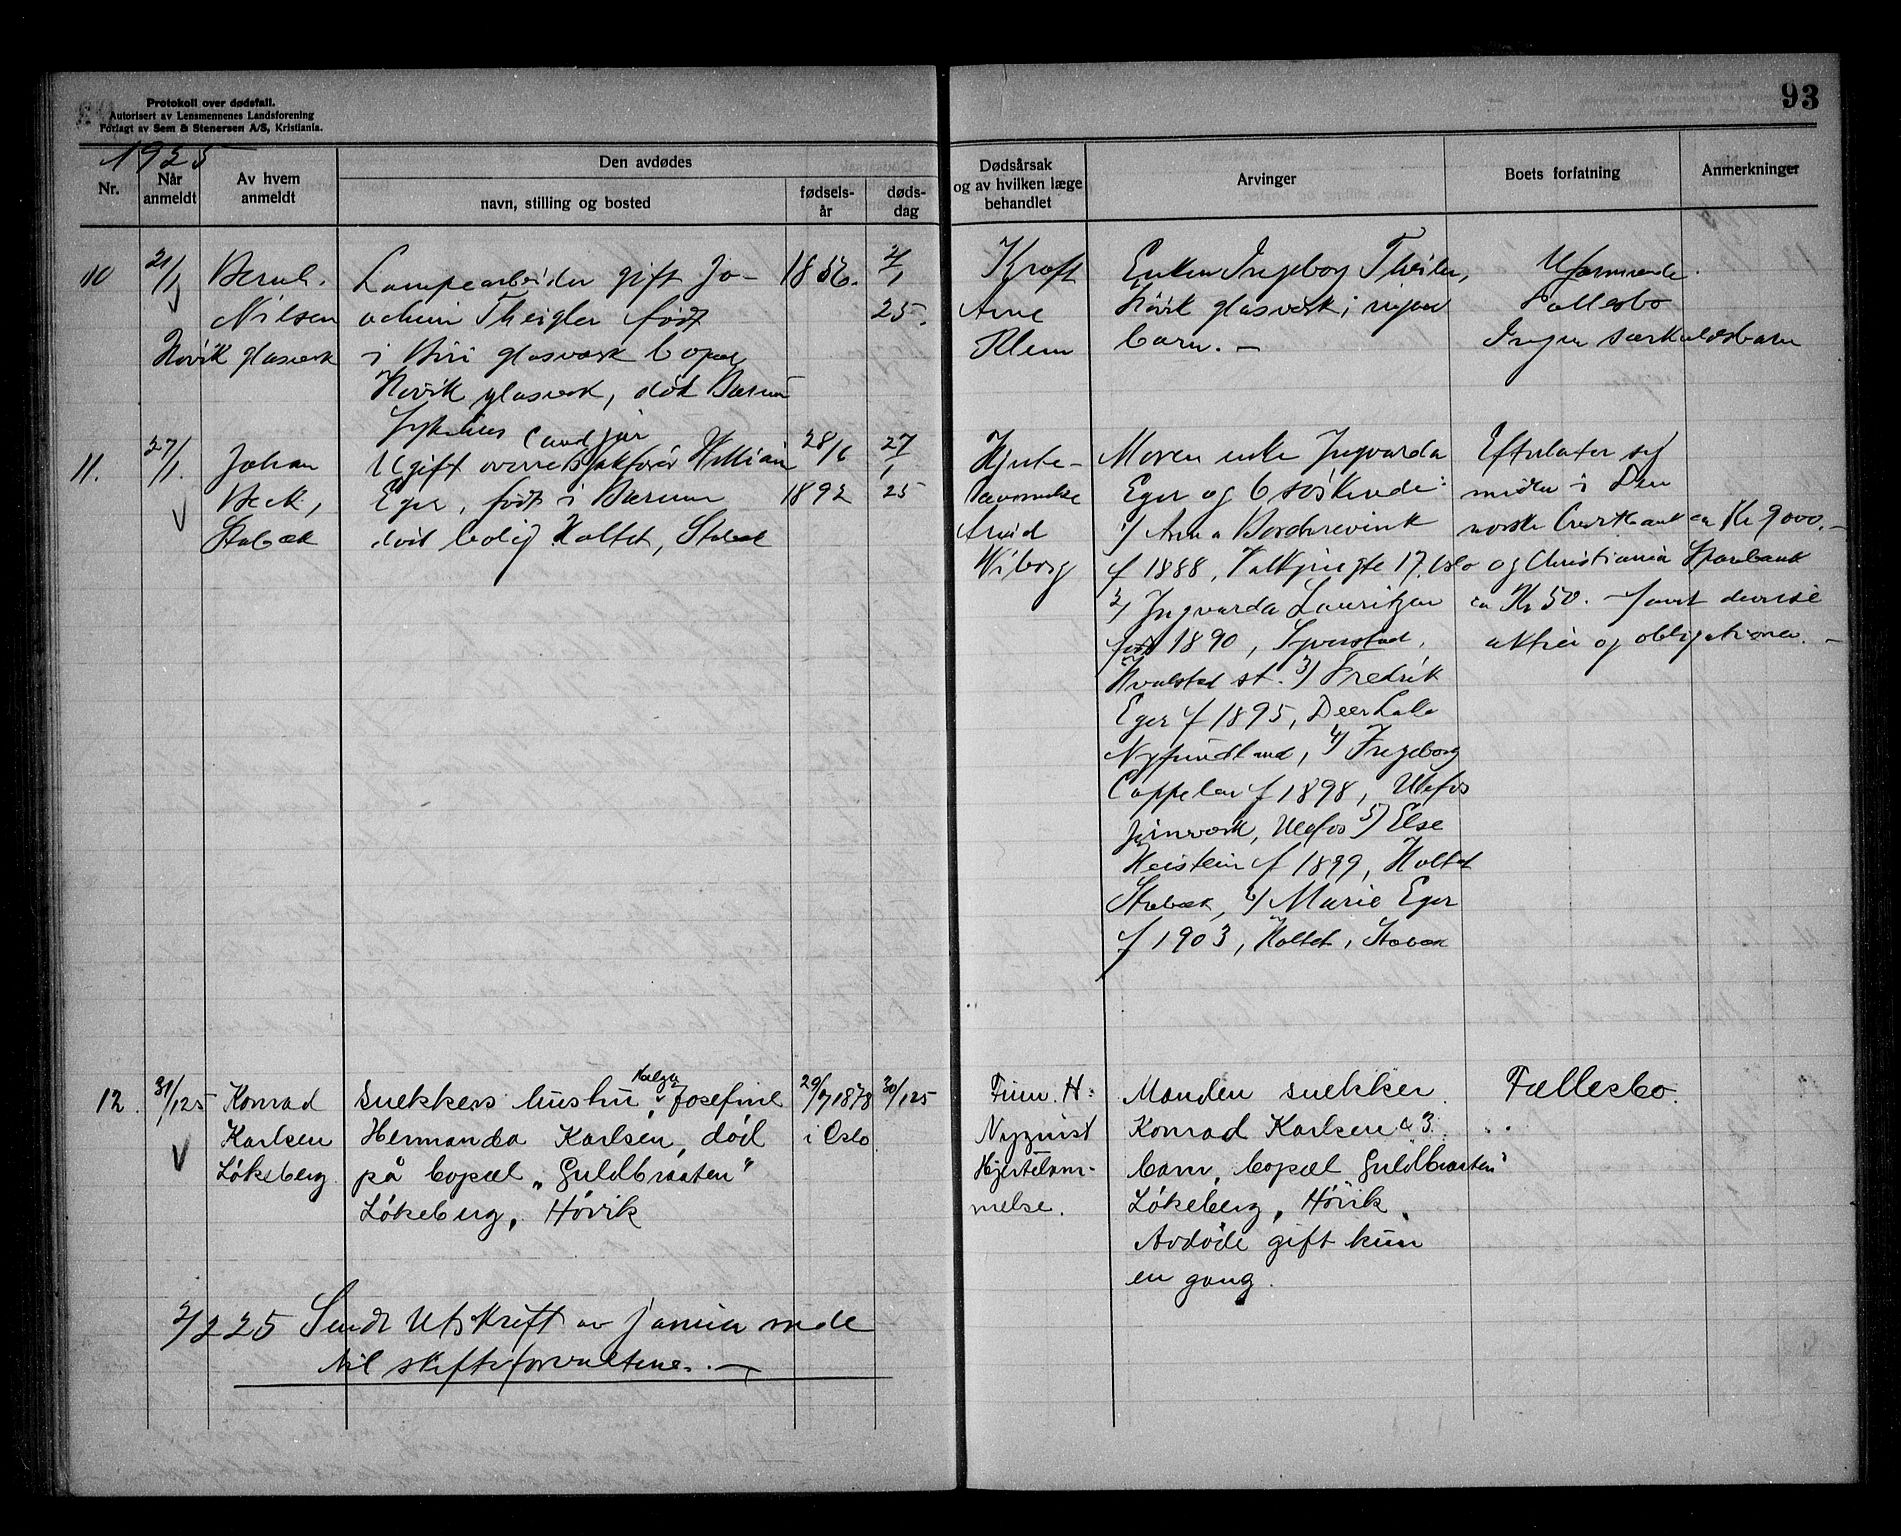 Protokoll over dødsfall.
Autorisert av Lensmennenes Landsforening
Forlagt av Sem & Stenersen A/S, Kristiania.
93
1925
Nr.
Når anmeldt
Av hvem anmeldt
Den avdødes
navn, stilling og bosted
fødselsår
dødsdag
Dødsårsak og av hvilken læge behandlet
Arvinger
Boets forfatning
Anmerkninger
10
21/1
Bernh.
Nilsen
Høvik glasverk
Lampearbeider gift Jo-
achim Theigler født
i Biri glasverk bopæl
Høvik glasverk, død Bærum
Sykehus
1856.
2/1
25.
Kræft
Arne
Klem
Enken Ingeborg Theiler,
Høvik glasverk, ingen
barn. —
Uformuende.
Fællesbo
Ingen særkuldsbarn
11.
27/1.
Johan
Beck,
Stabæk
cand jur
Ugift overretssakfører William
Eger, født i Bærum
død bolig Holtet, Stabæk
28/6
1892
27/1
25
Hjerte-
Arvid
Wiborg
Moren enke Ingvarda
Eger og 6 søskende:
1/ Anna Borchrevink
f 1888, 17. Oslo
2/ Ingvarda Lauritzen
født 1890,
Hvalstad st. 3/ Fredrik
Eger f 1895, Deer Lake
Nyfundland, 4/ Ingeborg
Cappelen f 1898, Ulefos
Jernværk, Ulefos 5/ Else
Heistein f 1899, Holtet
Stabæk, 6/ Marie Eger
f 1903, Holtet, Stabæk
Efterlater sig
midler i Den
norske Creditbank ca Kr 9000.—
og Christiania Sparebank
ca Kr 50. — samt diverse
aktier og obligationer. —
12.
31/1 25
Konrad
Karlsen
Løkeberg
Snekkers hustru, Helga Josefine
Hermanda Karlsen, død
på bopæl „Guldbraaten"
Løkeberg, Høvik
29/7 1878
i Oslo
30/1 25
Finn. H.
Nyquist
Hjertelam-
melse.
Manden snekker
Konrad Karlsen & 3
barn, bopæl Guldbraaten"
Løkeberg, Høvik.
Avdøde gift kun
en gang.
Fællesbo.
2/2 25 Sendt Utskrift av januar mdr
til skifteforvalteren. —